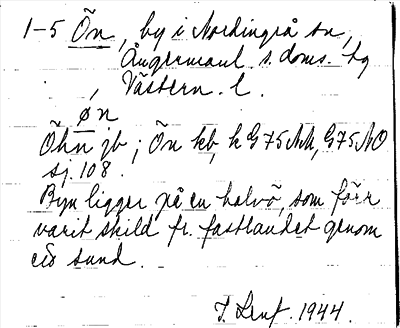 1-5 Ön, by i Nordingrå sn,
Ångermanl. s. doms. hg
, Västern. l.
øn
Öhn jb; Ön kb, k G75NA, G75NO
sj. 108.
Byn ligger på en halvö, som förr
varit skild fr. fastlandet genom
ett sund.
1944.